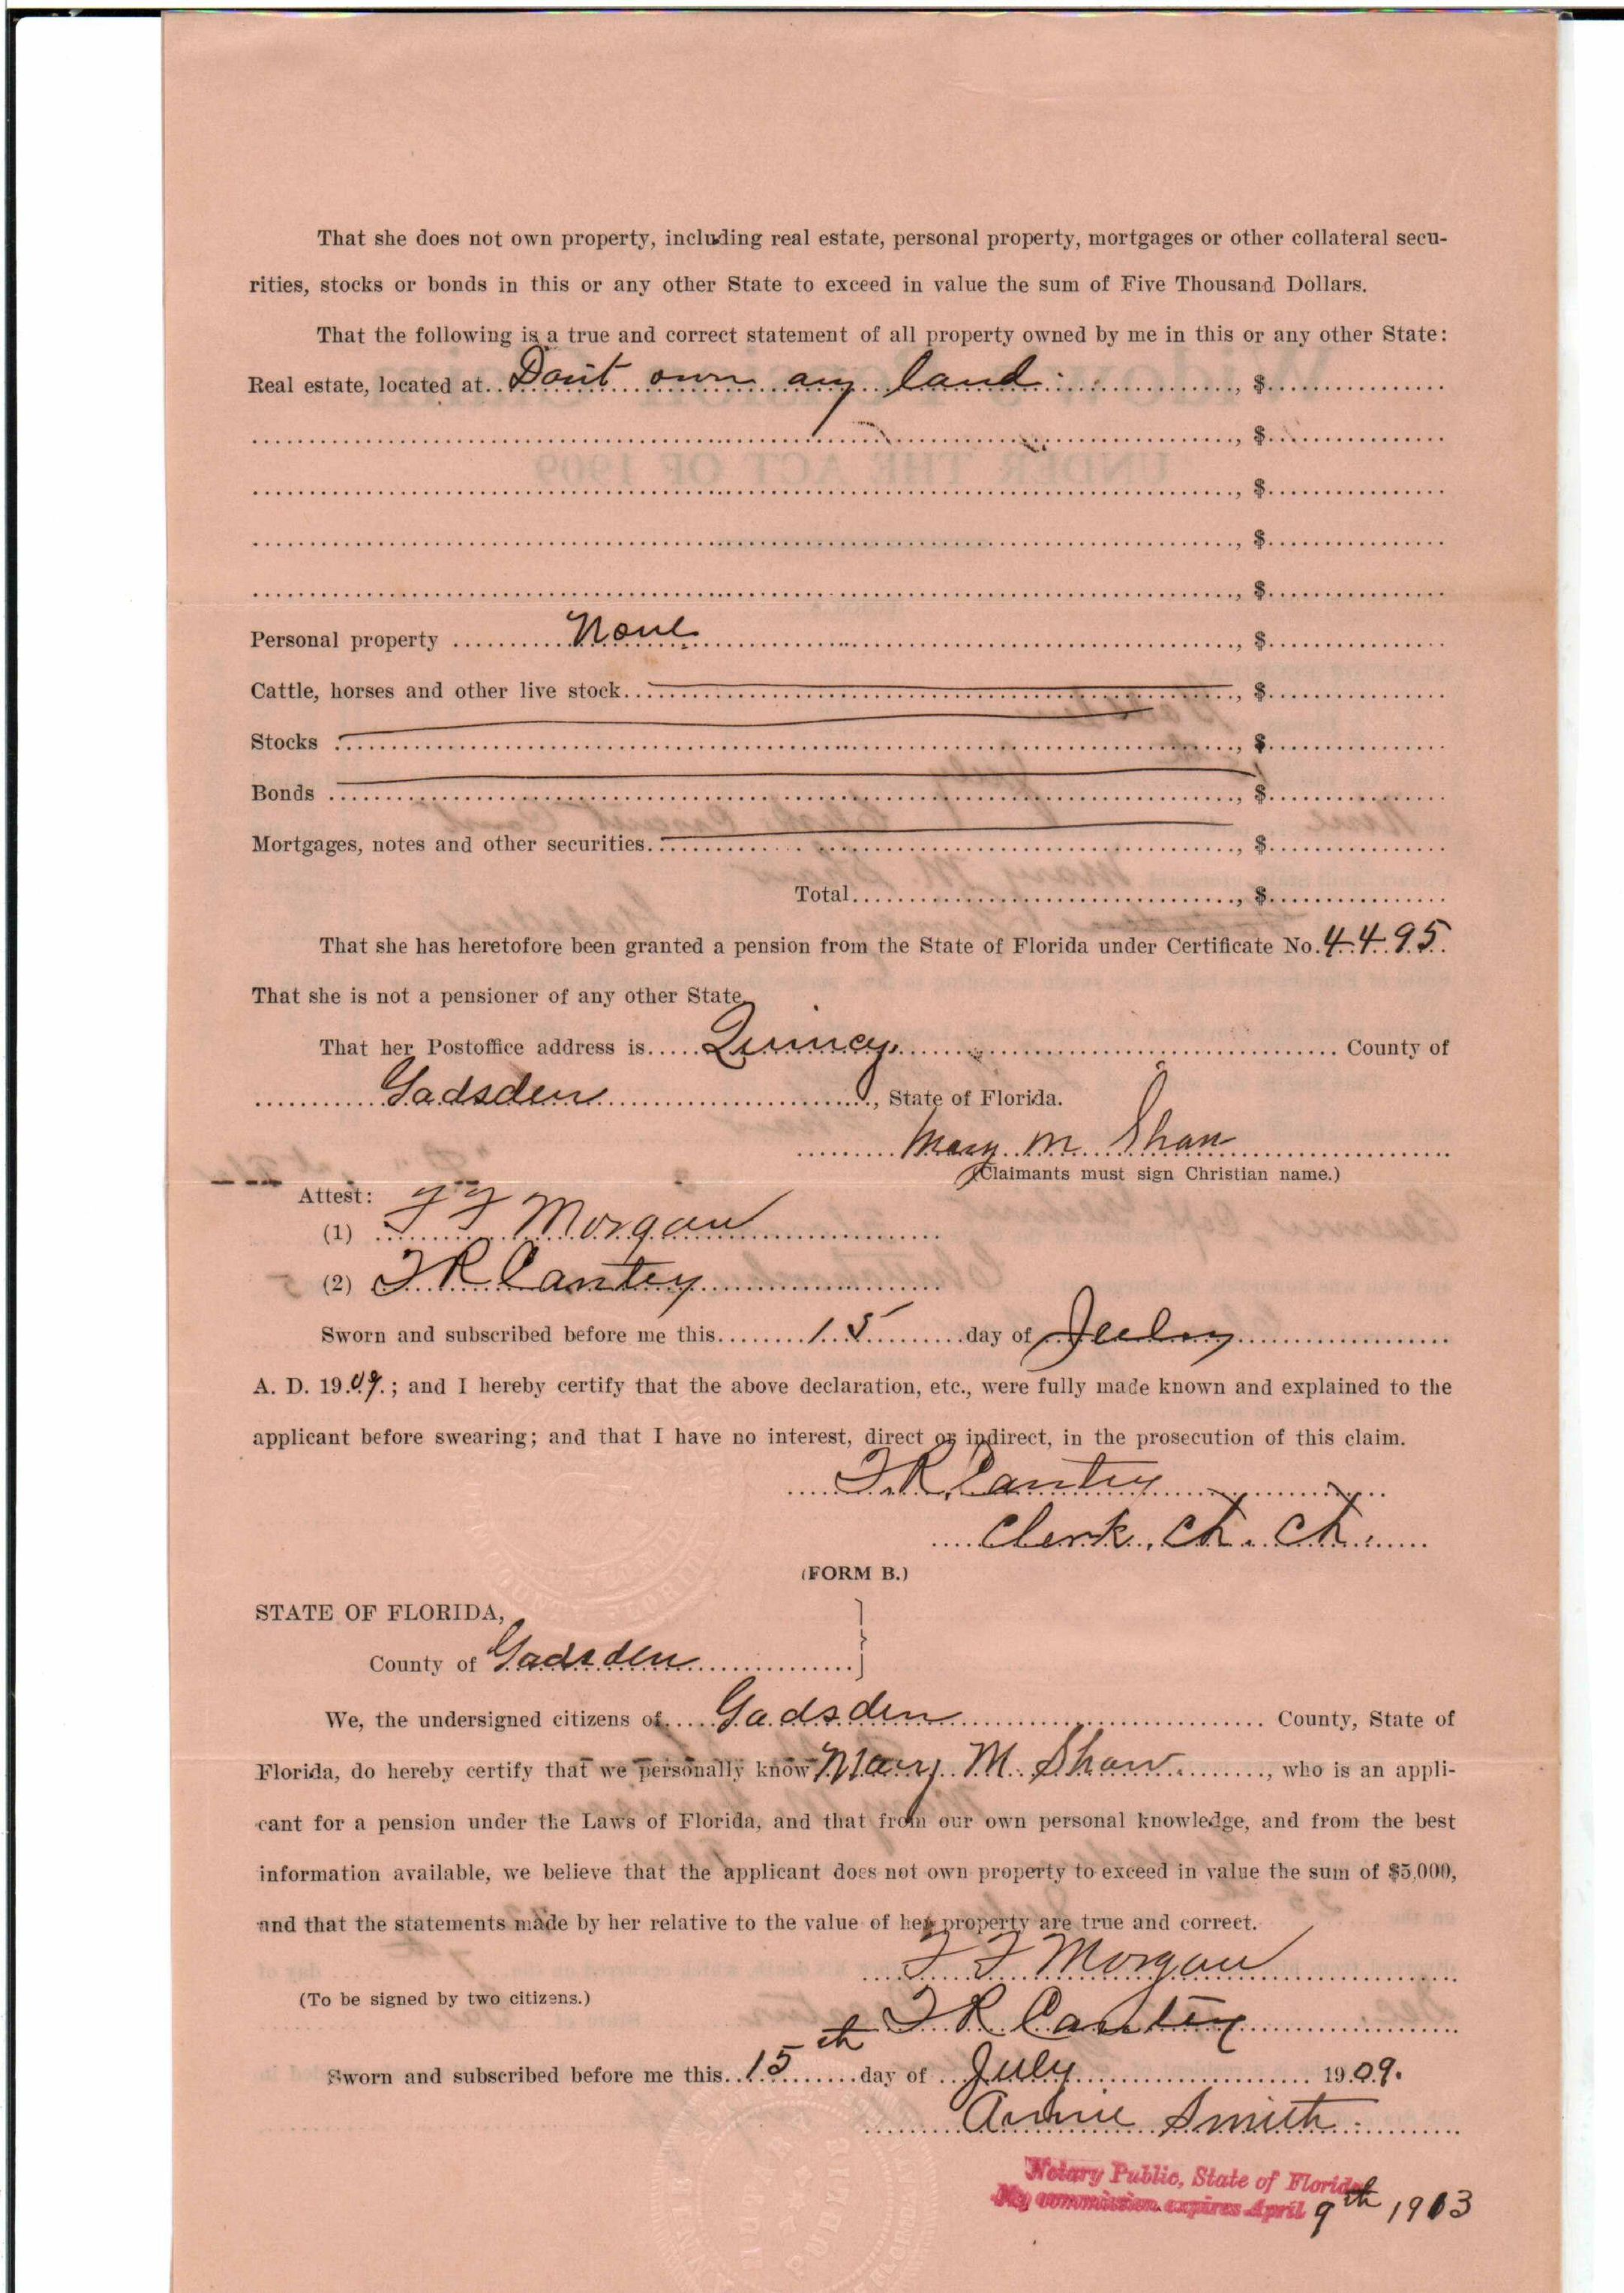 That she does not own property, including real estate, personal property, mortgages or other collateral secu-
rities, stocks or bonds in this or any other State to exceed in value the sum of Five Thousand Dollars.
That the following is a true and correct statement of all property owned by me in this or any other State:
Real estate, located at Don't own any land , $
, $
UNDER THE ACT OF 1909
, $
, $
, $
Personal property None , $
Cattle, horses and other live stock , $
Stocks , $
Bonds , $
Mortgages, notes and other securities , $
Total , $
That she has heretofore been granted a pension from the State of Florida under Certificate No. 4495
That she is not a pensioner of any other State.
That her Postoffice address is Quincy County of
Gadsden , State of Florida.
Mary M Shaw
(Claimants must sign Christian name.)
Attest:
(1) F F Morgan
(2) T R Cantey
Sworn and subscribed before me this 15 day of July
A. D. 1909.; and I hereby certify that the above declaration, etc., were fully made known and explained to the
applicant before swearing; and that I have no interest, direct or indirect, in the prosecution of this claim.
T R Cantey
Clerk, Ch. Ch.
(FORM B.)
STATE OF FLORIDA,
County of Gadsden
We, the undersigned citizens of Gadsden County, State of
Florida, do hereby certify that we personally know Mary M. Shaw , who is an appli-
cant for a pension under the Laws of Florida, and that from our own personal knowledge, and from the best
information available, we believe that the applicant does not own property to exceed in value the sum of $5,000,
and that the statements made by her relative to the value of her property are true and correct.
F F Morgan
(To be signed by two citizens.)
T R Cantey
Sworn and subscribed before me this 15th day of July 1909.
Annie Smith
Notary Public, State of Florida
My commission expires April 9th 1913